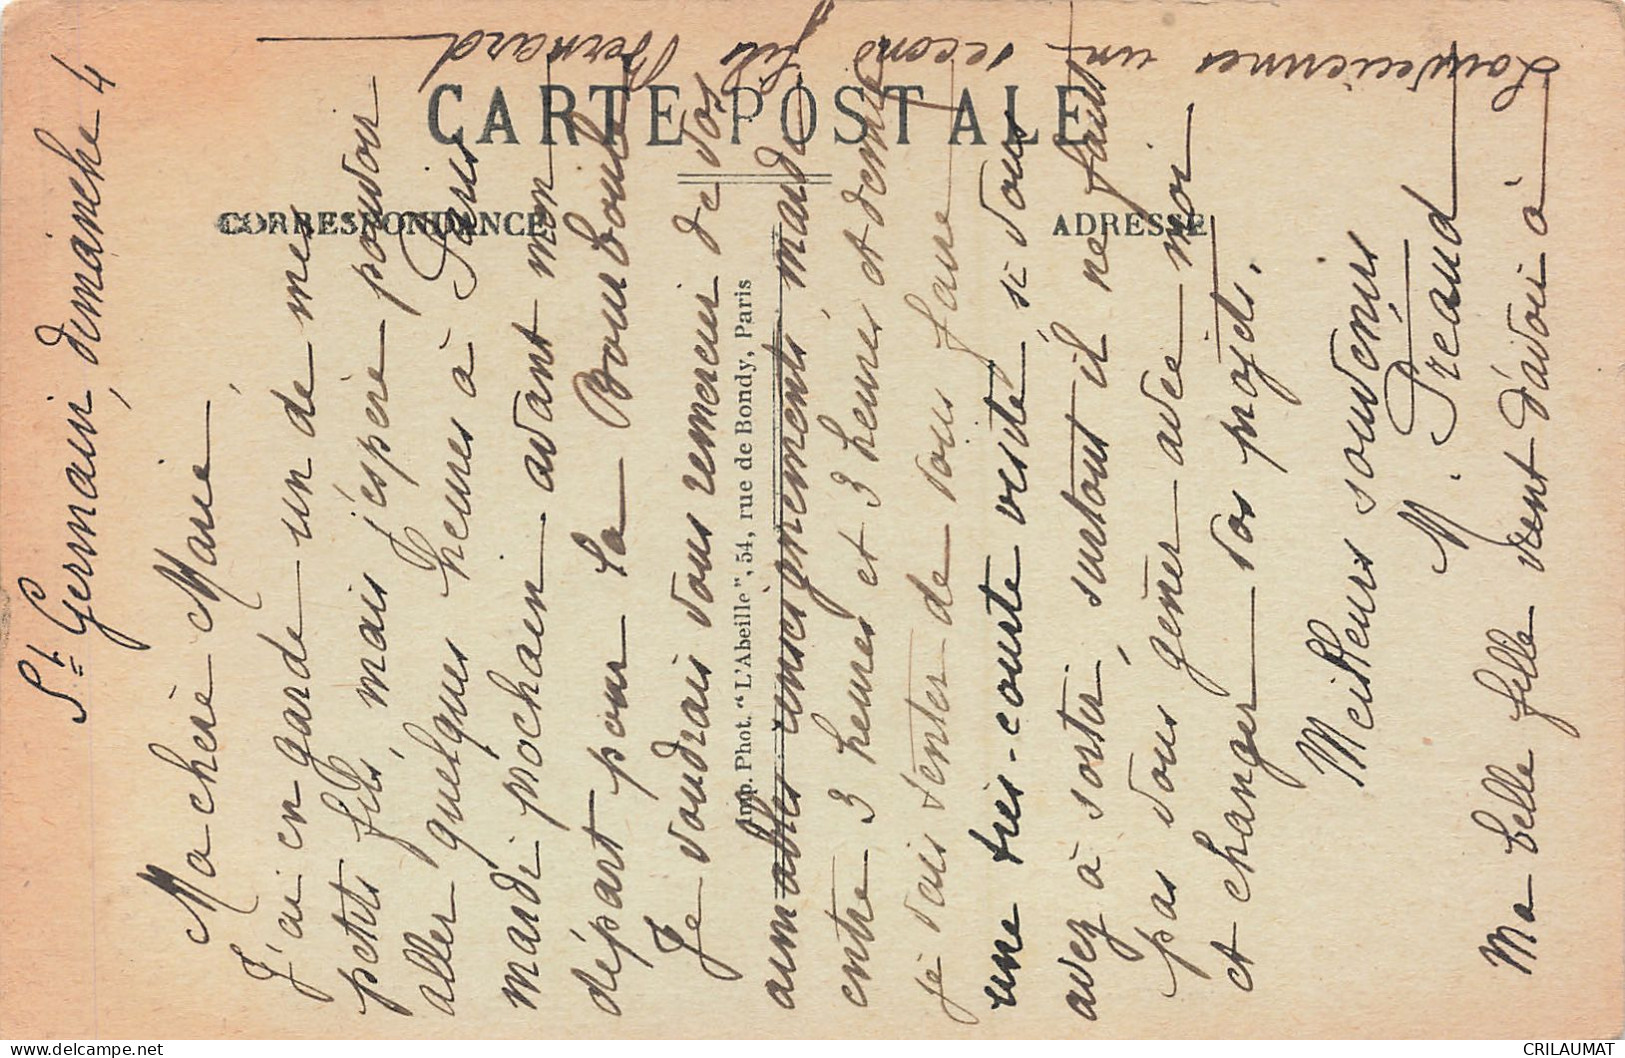 CARTE POSTALE
CORRESPONDANCE
ADRESSE
Imp. Phot. "L'Abeille", 54, rue de Bondy, Paris
St Germain, dimanche 4
Ma chère Marie
J'ai en garde un de mes
petits fils, mais j'espère pouvoir
aller quelques heures à Paris
mardi prochain avant mon
départ pour La Bourboule
Je voudrais vous remercier de vos
aimables renseignements, mardi
entre 3 heures et 3 heures et demie
je vais tenter de vous faire
une très-courte visite, si vous
avez à sortir, surtout il ne faut
pas vous gêner avec moi
et changer vos projets.
Meilleurs souvenirs
M. Préaud
Ma belle fille vient d'avoir à
Louveciennes un second fils Bernard
CRILAUMAT